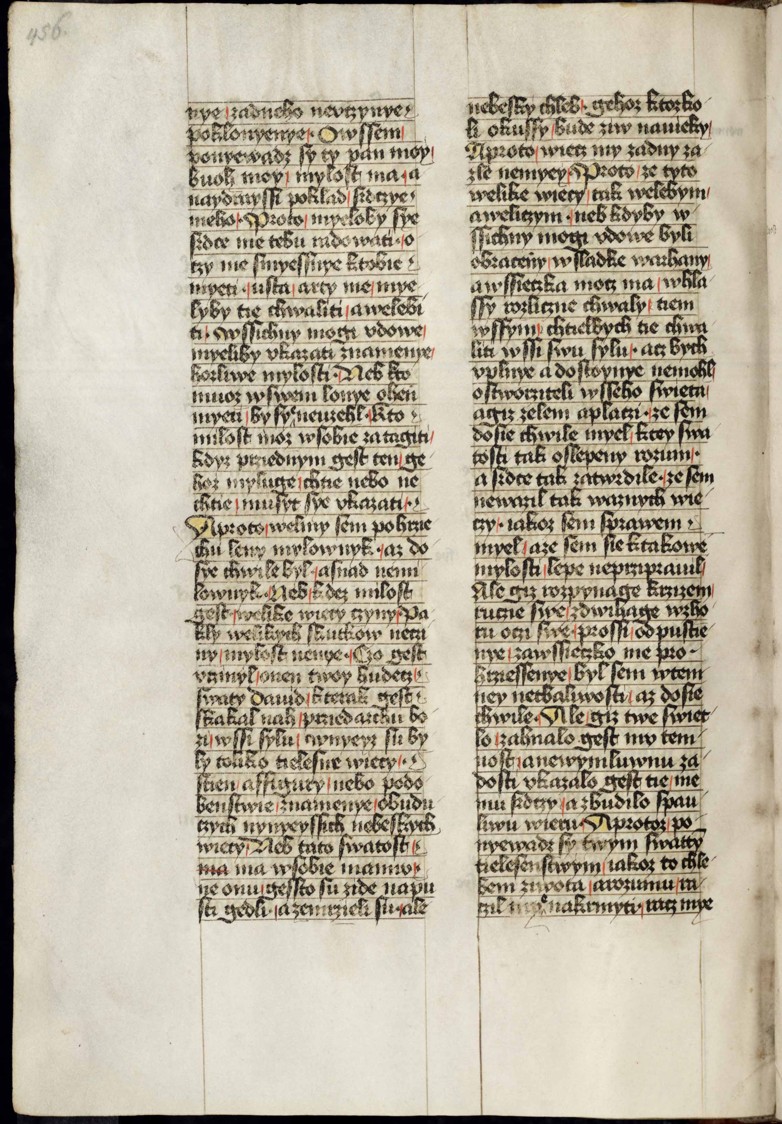 456.
nye zadneho nevczynye
poklonyenye. Owssem
ponyewadz sy ty pan moy
buoh moy mylost ma a
naydrayssi poklad srdczye
meho. Proto myeloby sye
srdce me tebu radowati o
czy me smyessnye ktobie
myeti usta a rty me mye
lyby tie chwaliti a welebi
ti. wssichny mogi vdowe
myeliby vkazati znamenye
horliwe mylosti. Neb kto
muoz wswem lonye ohen
myeti by sye neuzehl. Kto
milost moz wsobie zatagiti
kdyz przednym gest ten ge
hoz myluge chtie nebo ne
chtie musyt sye vkazati.
A proto welmy sem po hrzie
chu leny mylownyk. az do
sye chwile byl. a snad nemi
lownyk. Neb kdez milost
gest welike wiecy czyny Pa
kly welikych skutkow neczi
ny mylost nenye. Czo gest
vczinyl onen twoy sudecz
swaty Dauid kterak gest
skakal nah przed archu bo
zi wssi sylu cwnyeyz su by
ly toliko tielesne wiecy.
stien a ffigury nebo podo
benstwie znamenye obudu
czych nynyeyssich nebeskych
wiecy. Neb tato swatost
ma ma wsobie mannu
ne onu gessto su zide na pu
sti gedli a zemrzieli su. ale
nebesky chleb. gehoz ktozko
li okussy bude ziw nawieky
A proto wiecz my zadny za
zle nemyey. Proto ze tyto
welike wiecy tak welebym
a weliczym. neb kdyby w
ssichny mogi vdowe byli
obraceny wsladke warhany
a wssieczka mocz ma whla
sy rozliczne chwaly tiem
wssym chtielbych tie chwa
liti wssi swu sylu. acz bych
vplnye a dostoynye nemohl
o stworziteli wsseho swieta
a giz zelem a placzi. ze sem
dosie chwile myel ktey swa
tosti tak oslepeny rozum
a srdce tak zatwrdile. ze sem
newazil tak waznych wie
czy. iakoz sem sprawem
myel a ze sem sie ktakowe
mylosti lepe neprziprauil
Ale giz rozpynage krzizem
rucze swe zdwihage wzho
ru oczi swe prossi odpustie
nye zawssieczko me pro
hrziessenye byl sem wtem
ney netbaliwosti az dosie
chwile. Ale giz twe swiet
lo zahnalo gest mu tem
nost a newymluwnu za
dosti vkazalo gest tie me
mu srdczy a zbudilo spau
liwu wieru. A protoz po
nyewadz sy twym swatty
tielesenstwym iakoz to chle
bem ziwota a rozumu ra
czil nakrmyti racz mye